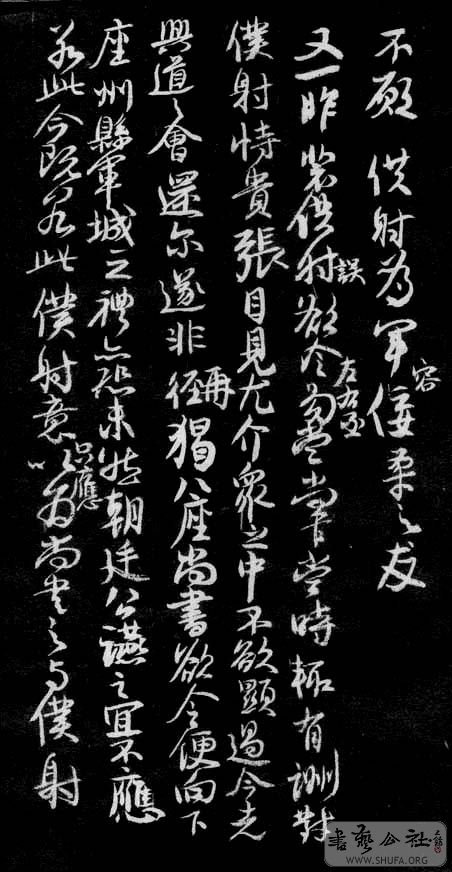 不願僕射為軍容佞柔之友
又一昨裴僕射誤欲令左右丞勾當尚書當時輒有詶對
僕射恃貴張目見尤介眾之中不欲顯過今者
興道之會還爾遂非再猲八座尚書欲令便向下
座州縣軍城之禮亦恐未然朝廷公讌之宜不應
若此今既若此僕射意只應以為尚書之與僕射
書藝公社
WWW.SHUFA.ORG